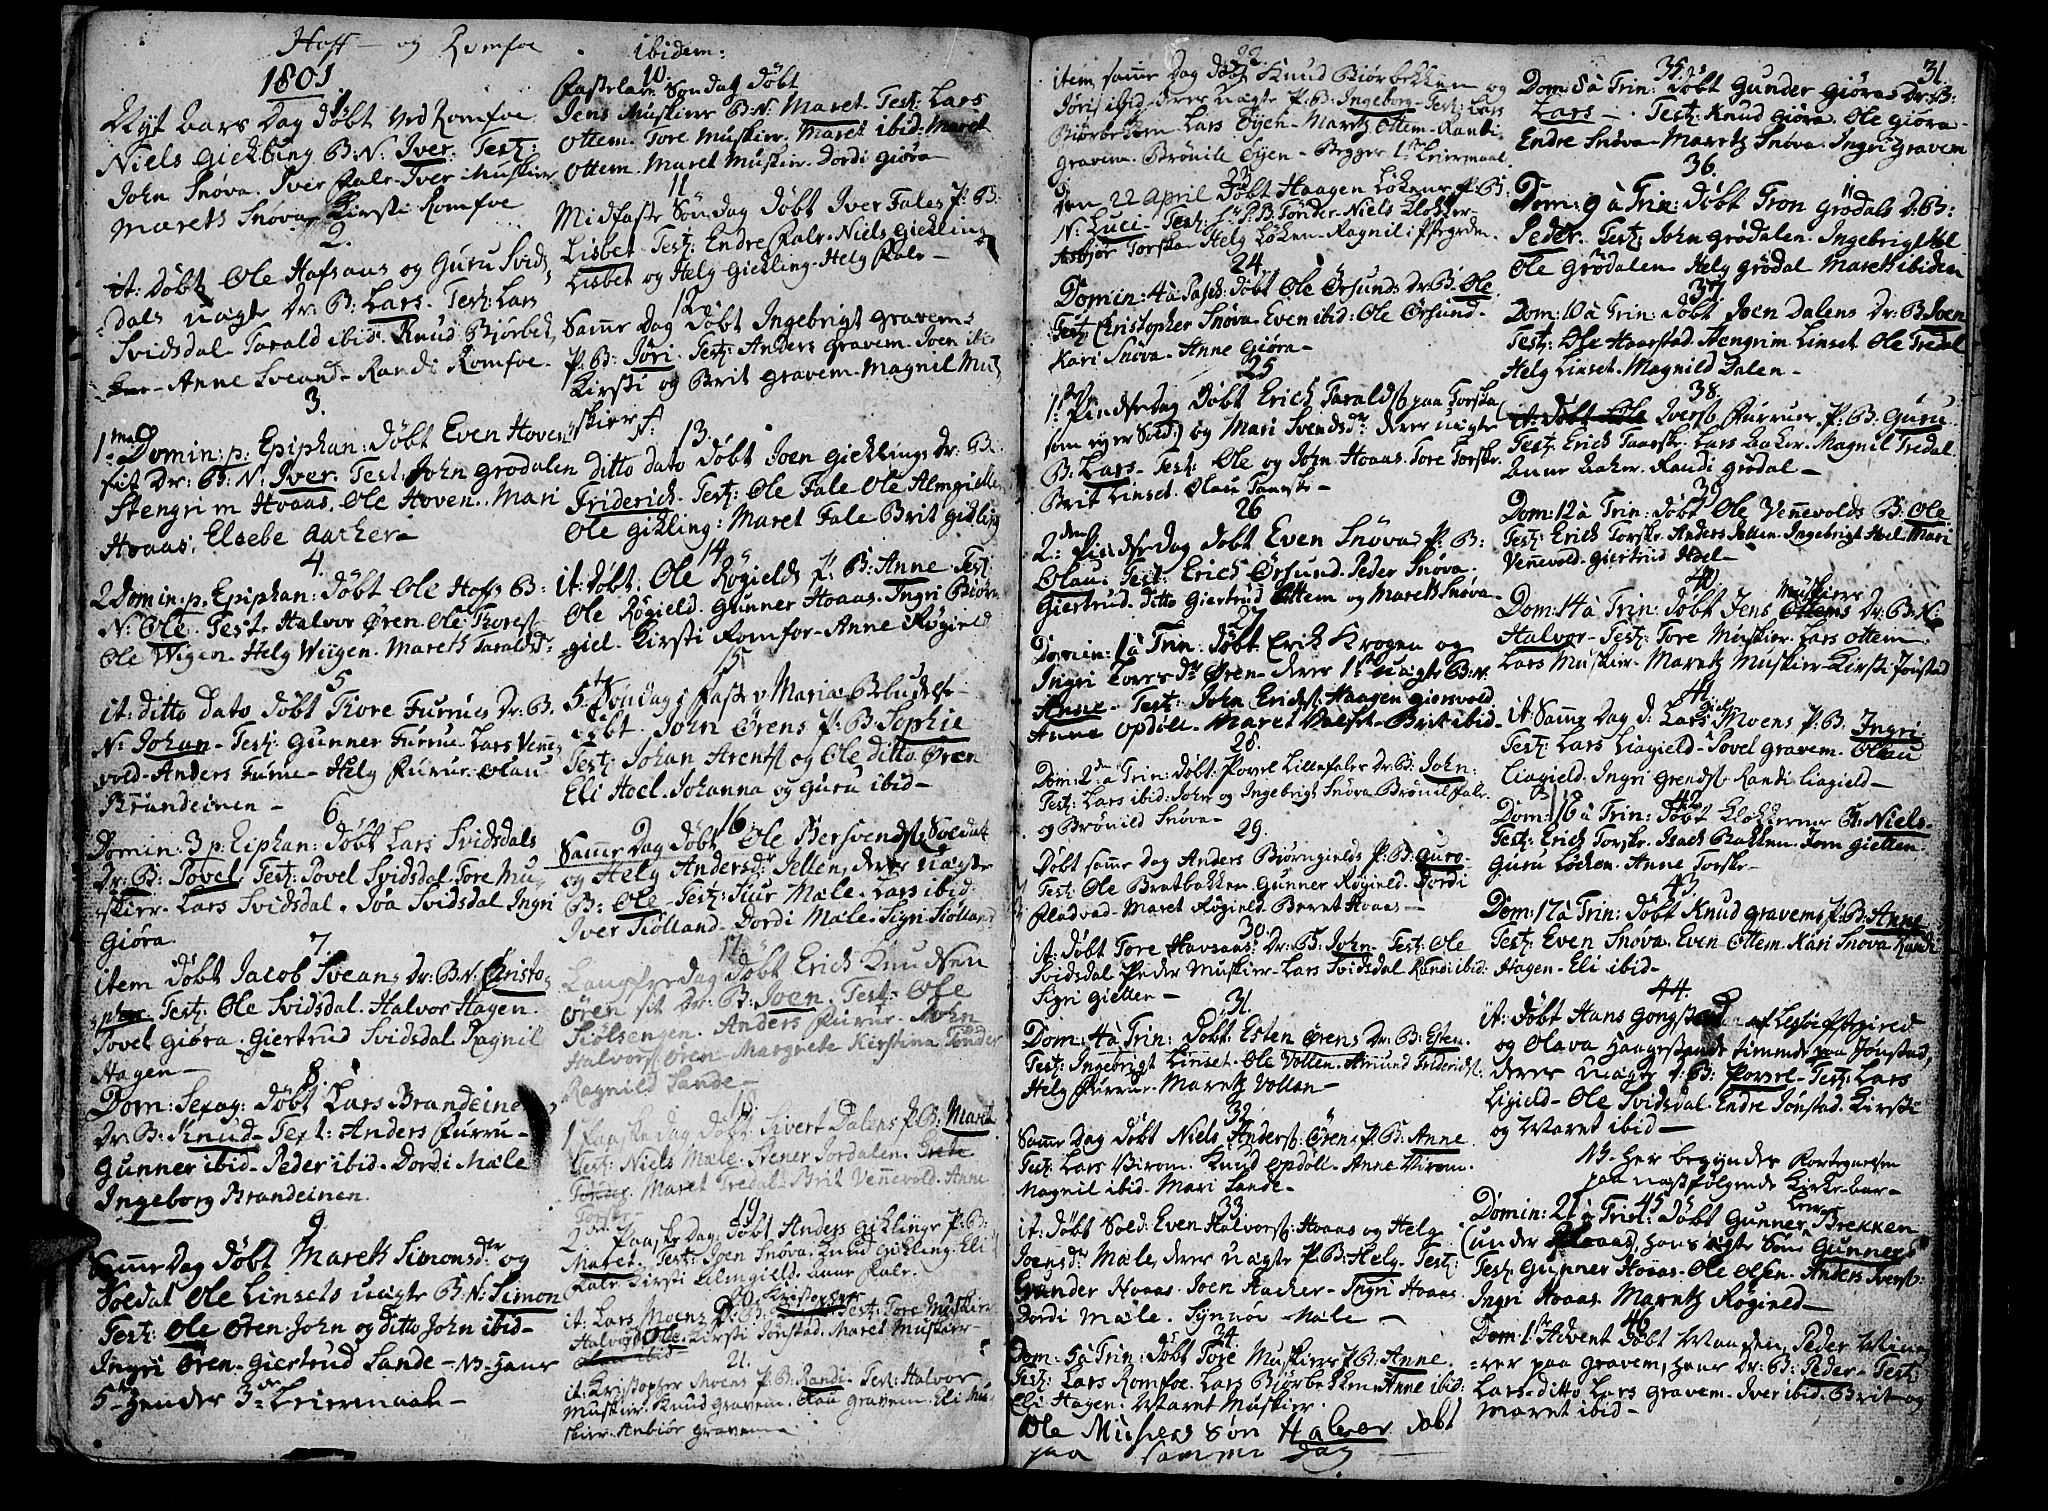 Hoff - og Romfoe
1801
1.
Nyt Aars Dag døbt ved Romfoe
Niels Gickling B: N: Iver. Test:
John Snøva. Iver Fale. Iver Muskier
Mareth Snøva. Kirsti Romfoe
2.
it: døbt Ole Hafsaas og Guru Svids
dals uægte Dr: B: Lars. Test: Lars
Svidsdal Tarald ibid: Knud Bjørbek
Anne Sveand - Randi Romfoe.
3.
1ma Domin: p: Epiphan: døbt Even Hoven
sit Dr: B: N: Iver. Test: John Grødalen
Stengrim Hoaas. Ole Hoven. Mari
Hoaas. Elsebe Aacker.
4.
2 Domin: p. Epiphan: døbt Ole Hoffs B:
N: Ole. Test. Halvor Øren. Ole Thores
Ole Wigen. Helg Wiigen. Mareth Taraldsdr
5
it: ditto dato døbt Tore Furrues Dr: B.
N: Johan. Test: Gunner Furrue. Lars Venne
vold. Anders Furue. Helg Furue. Olau
Brandeinen -
6.
Domin: 3 p. Epiphan: døbt Lars Svidsdals
Dr: B: Povel. Test: Povel Svidsdal. Tore Mu
skier. Lars Svidsdal. Joa Svidsdal Ingri
Giøra.
7.
item døbt Jacob Sveans Dr: B: N. Christo
pher. Test: Ole Svidsdal. Halvor Hagen.
Povel Giøra. Giertrud Svidsdal. Ragnil
Hagen -
8.
Dom: Sexag: døbt Lars Brandeine
Dr: B: Knud. Test: Anders Furru-
Gunner ibid. Peder ibid. Dordi Mæle
Ingeborg Brandeinen.
9.
Same Dag døbt Mareth Simonsdr og
Soldat Ole Linsets uægte B: N: Simon
Test: Ole Øren. John og ditto John ibid-
Ingri Øren. Giertrud Sande - NB Hans
5te hendes 3die Leiermaal -
ibidem:
10.
Fastelavns Søndag døbt
Jens Muskiers B: N: Maret. Test: Lars
Ottem. Tore Muskier. Maret ibid: Maret
Ottem. Maret Muskier. Dordi Giøra
11
Midfaste Søndag døbt Iver Fales P: B:
Lisbet. Test: Endre Fale. Niels Gickling
Lisbet og Helg Gickling. Helg Fale -
12
Same Dag døbt Ingebrigt Gravems
P: B: Jøri. Test: Anders Gravem. Joen ibid
Kirsti og Brit Gravem. Magnil Mu
skier.
13.
ditto dato døbt Joen Gicklings Dr: B:
Friderich. Test: Ole Fale Ole Almgield
Ole Gickling: Maret Fale Brit Gickling
14
it: døbt. Ole Røgields P: B: Anne Test
Ole Røgield. Gunner Hoaas. Ingri Biørn
giel. Kirsti Romfoe - Anne Røgield
15
5te Søndag i Faste v Mariæ Bebudelse
døbt. John Ørens P: B. Sophie
Test: Johan Arentz og Ole ditto. Øren
Eli Hoel. Johanna og Guru ibid -
16
Same Dag døbt Ole Bersvends: Soldat
og Helg Andersdr Jellen, deres uægte
B: Ole. Test: Siur Mæle. Lars ibid:
Iver Siølland. Dordi Mæle. Sigri Siølland
17
Langfredag døbt Erich Knudsen
Øren sit Dr: B: Joen. Test: Ole
Siølsengen. Anders Furue. John
Halvors: Øren. Margrete Kirstina Tønder
Ragnild Sande -
18
1 Paaske Dag døbt Sivert Dalens P: B: Maret
Test: Niels Mæle. Stener Jordalen.
Maret Tredal. Brit Vennevold. Anne
Torske -
19
2den Paaske Dag: døbt Anders Gicklings P: B:
Maret. Test: Joen Snøva. Knud Gickling. Eli
Fale. Kirsti Almgield. Anne Fale.
20.
it: Lars Moens D: B: Christopher Test: Tore Muskier
Halvor Ole. Kirsti Jønstad. Maret Muskier
ibid -
21.
it: Christopher Moens P: B: Randi. Test: Halvor
Muskier. Knud Gravem. Aaa Gravem. Eli Mu
skier. Anbiør Gravem
22.
item same Dag døbt Knud Biørbekken og
Jøri ibid. deres uægte P: B: Ingeborg. Test: Lars
Biørbekken. Lars Øyen. Mareth Ottem. Randi
Gravem. Brønild Øyen. Begges 1ste Leiermaal
23
Den 22 April døbt Haagen Løkens P: B:
N: Luci. Test: Hr P. B. Tønder. Niels Klokker.
Asbjør Torske. Helg Løken. Ragnil i Præstgrden.
24.
Domin: 4 a Pasch: døbt Ole Ørsunds Dr: B: Ole.
Test: Christopher Snøva. Even ibid: Ole Ørsund
Kari Snøva. Anne Giøra -
25
1ste Pindse Dag døbt Erich Taralds: paa Torske
(som er Sold:) og Mari Svendsdr deres uægte
B: Lars. Test: Ole og John Hoaas. Tore Torske
Brit Linset. Olau Torske -
26
2den Pindse Dag døbt Even Snøvas P: B:
Olau. Test: Erich Ørsund. Peder Snøva.
Giertrud. ditto Giertrud Ottem og Mareth Snøva -
27
Domin: 1 a Trin: døbt Erik Krogen og
Ingri Toresdr Øren. deres 1ste uægte B: N.
Anne. Test: John Erichs: Haagen Giersvold.
Anne Opdøll. Maret Brit ibid
28.
Dom: 2da Trin: døbt Povel Lillefales Dr: B: John.
Test: Lars ibid: John og Ingebrigt Snøva. Brønil Fale
og Brønild Snøva -
29.
Døbt same Dag Anders Biørngields P: B: Guro.
Test: Ole Bratbakken Gunner Røgield. Dordi
Fladvad. Maret Røgield. Beret Hoaas -
30.
it: døbt Tore Havsaas: Dr: B. John. Test: Ole
Svidsdal Peder Muskier. Lars Svidsdal Randi ibid:
Sigri Gielten -
31.
Dom: 4 a Trin: døbt. Esten Ørens Dr: B: Esten.
Test: Ingebrigt Linset. Ole Vollen. Amund Friderichs:
Helg Furrue. Mareth Vollan -
32
Same Dag døbt Niels Anders: Ørens P: B: Anne
Test: Lars Virom. Knud Opdøll. Anne Virom.
Magnil ibid. Mari Sande -
33
it: døbt Sold: Even Halvors: Hoaas og Helg
Joensdr Mæle, deres uægte P: B: Helg. Test:
Gunder Hoaas. Joen Aacker. Ingri Hoaas
Dordi Mæle. Synnøv Mæle -
34.
Dom: 5 a Trin: døbt Tore Muskiers P: B: Anne.
Test: Lars Romfoe. Lars Biørbekken Anne ibid:
Eli Hagen: Maret Muskier.
Ole Muskiers søn Halvor døbt
paa samme Dag
31.
35.
Dom: 8 a Trin: døbt Gunder Giøras Dr: B:
Lars - Test: Knud Giøra. Ole Giøra -
Endre Snøva. Mareth Snøva. Ingri Gravem
36.
Dom: 9 a Trin: døbt Tron Grødals Dr: B:
Peder. Test: John Grødalen. Ingebrigt Hoel
Ole Grødalen Helg Grødal Mareth ibidem
37
Dom: 10 a Trin: døbt Joen Dalens Dr: B Joen
Test: Ole Haarstad. Stengrim Linset. Ole Tredal
Helg Linset. Magnild Dalen -
38.
it: døbt Ole Ivers: Furrues P: B: Guru
Test: Erich Torske. Lars Aaker. Magnil Tredal
Anne Aaker. Randi Grødal -
39
Dom: 12 a Trin: døbt Ole Vennevolds B: Ole.
Test: Erich Torske. Anders Jellen. Ingebrigt Hoel. Mari
Vennevold. Giertrud Hoel -
40.
Muskiers
Dom: 14 a Trin: døbt Jens Ottems Dr: B: N:
Halvor - Test: Tore Muskier. Lars Ottem.
Lars Muskier. Mareth Muskier. Kirsti Jønstad
41
it: Same Dag d: Lars Moens P: B. Ingri.
Test: Lars Liagield. Povel Gravem. Olau
Liagield. Ingri Grends: Randi Liagield -
42
Dom: 16 a Trin: døbt Klokkerens B: Niels.
Test: Erich Torske. Isach Bakken. Joen Gielten
Guru Løcken. Anne Torske -
43
Dom: 17 a Trin: døbt Knud Gravems P: B: Anne
Test: Even Snøva. Even Ottem. Kari Snøva. Randi
Hagen. Eli ibid -
44.
it: døbt Hans Gongstad af Lesøe Præstgield
og Olava Haagestad tiennende paa Jønstad,
deres uægte P: B: Povel. Test: Lars
Ligield. Ole Svidsdal. Endre Jønstad. Kirsti
og Maret ibid -
NB. Her begynder Fortegnelsen
paa næstfølgende Kirke-Aar -
45
Domin: 21 a Trin: døbt Gunner Brekken
(under Hoaas, hans ægte Søn Gunner
Test: Gunner Hoaas. Ole Olsen. Anders Ivers:
Ingri Hoaas. Mareth Røgield -
46
Dom: 1ste Advent døbt Maanen, Peder Wine
rer paa Gravem, hans Dr: B: Peder - Test:
Lars. ditto Lars Gravem. Iver ibid. Brit og
Maret ibid -